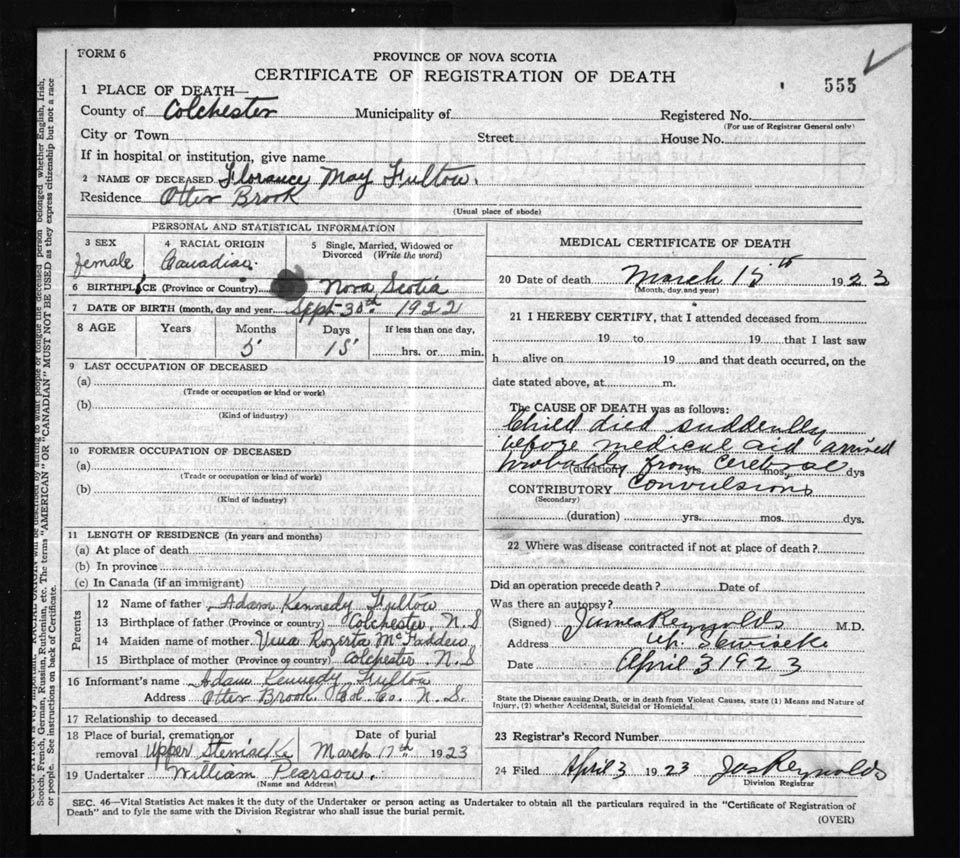 FORM 6
PROVINCE OF NOVA SCOTIA
CERTIFICATE OF REGISTRATION OF DEATH
555
1 PLACE OF DEATH—
County of Colchester Municipality of Registered No.
(For use of Registrar General only)
City or Town Street House No.
If in hospital or institution, give name
2 NAME OF DECEASED Florance May Fulton.
Residence Otter Brook
(Usual place of abode)
PERSONAL AND STATISTICAL INFORMATION
3 SEX 4 RACIAL ORIGIN 5 Single, Married, Widowed or
Divorced (Write the word)
female Canadian.
6 BIRTHPLACE (Province or Country) Nova Scotia
7 DATE OF BIRTH (month, day and year) Sept. 30th 1922
8 AGE Years Months Days If less than one day,
5 15 hrs. or min.
9 LAST OCCUPATION OF DECEASED
(a)
(Trade or occupation or kind or work)
(b)
(Kind of industry)
10 FORMER OCCUPATION OF DECEASED
(a)
(Trade or occupation or kind of work)
(b)
(Kind of industry)
11 LENGTH OF RESIDENCE (In years and months)
(a) At place of death
(b) In province
(c) In Canada (if an immigrant)
Parents
12 Name of father Adam Kennedy Fulton
13 Birthplace of father (Province or country) Colchester, N.S
14 Maiden name of mother McFadden
15 Birthplace of mother (Province or country) Colchester N.S
16 Informant's name Adam Kennedy Fulton
Address Otter Brook Col. Co. N.S.
17 Relationship to deceased
18 Place of burial, cremation or Date of burial
removal Upper Stewiacke March 17th 1923
19 Undertaker William Pearson.
(Name and Address)
MEDICAL CERTIFICATE OF DEATH
20 Date of death March 15th 1923
(Month, day and year)
21 I HEREBY CERTIFY, that I attended deceased from
19 to 19 that I last saw
h alive on 19 and that death occurred, on the
date stated above, at m.
The CAUSE OF DEATH was as follows:
Child died suddenly
before medical aid arrived
probably from Cerebral
(duration) yrs. mos. dys
CONTRIBUTORY Convulsions
(Secondary)
(duration) yrs. mos. dys.
22 Where was disease contracted if not at place of death?
Did an operation precede death? Date of
Was there an autopsy?
(Signed) James Reynolds M.D.
Address Up. Stewiacke
Date April 3 1923
State the Disease causing Death, or in death from Violent Causes, state (1) Means and Nature of
Injury, (2) whether Accidental, Suicidal or Homicidal.
23 Registrar's Record Number
24 Filed April 3 1923 Jas Reynolds
Division Registrar
SEC. 46—Vital Statistics Act makes it the duty of the Undertaker or person acting as Undertaker to obtain all the particulars required in the "Certificate of Registration of
Death" and to fyle the same with the Division Registrar who shall issue the burial permit.
(OVER)
people or tongue the deceased person belonged, whether English, Irish,
Scotch, French, German, Russian, Ruthenian, etc. The terms "AMERICAN" or "CANADIAN" MUST NOT BE USED as they express citizenship but not a race
or people. See instructions on back of Certificate.